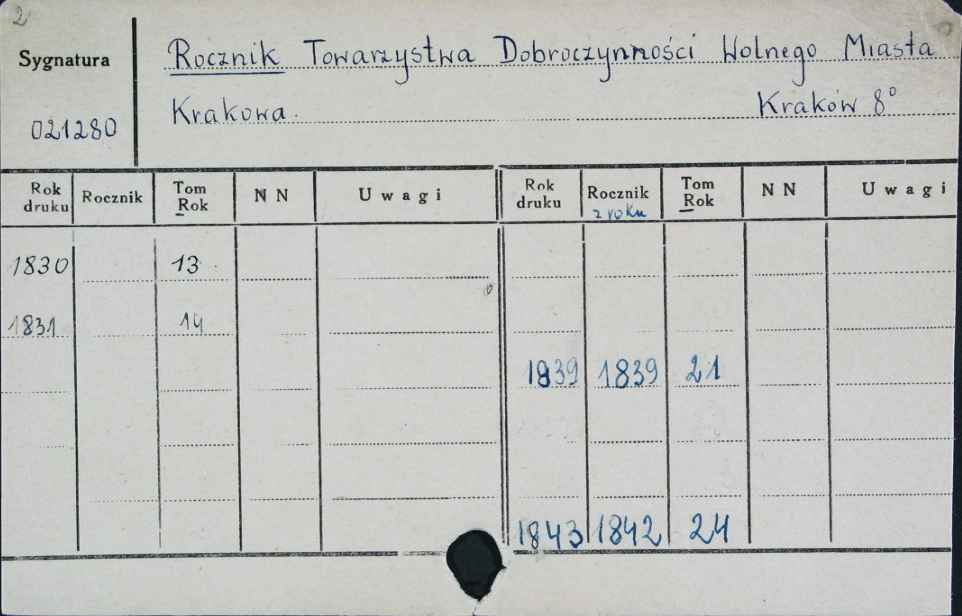 2
Sygnatura
Rocznik Towarzystwa Dobroczynności Wolnego Miasta
021280
Krakowa. Kraków 8°
Rok druku Rocznik Tom Rok N N Uwagi Rok druku Rocznik z roku Tom Rok N N Uwagi
1830 13
1831 14
1839 1839 21
1843 1842 24